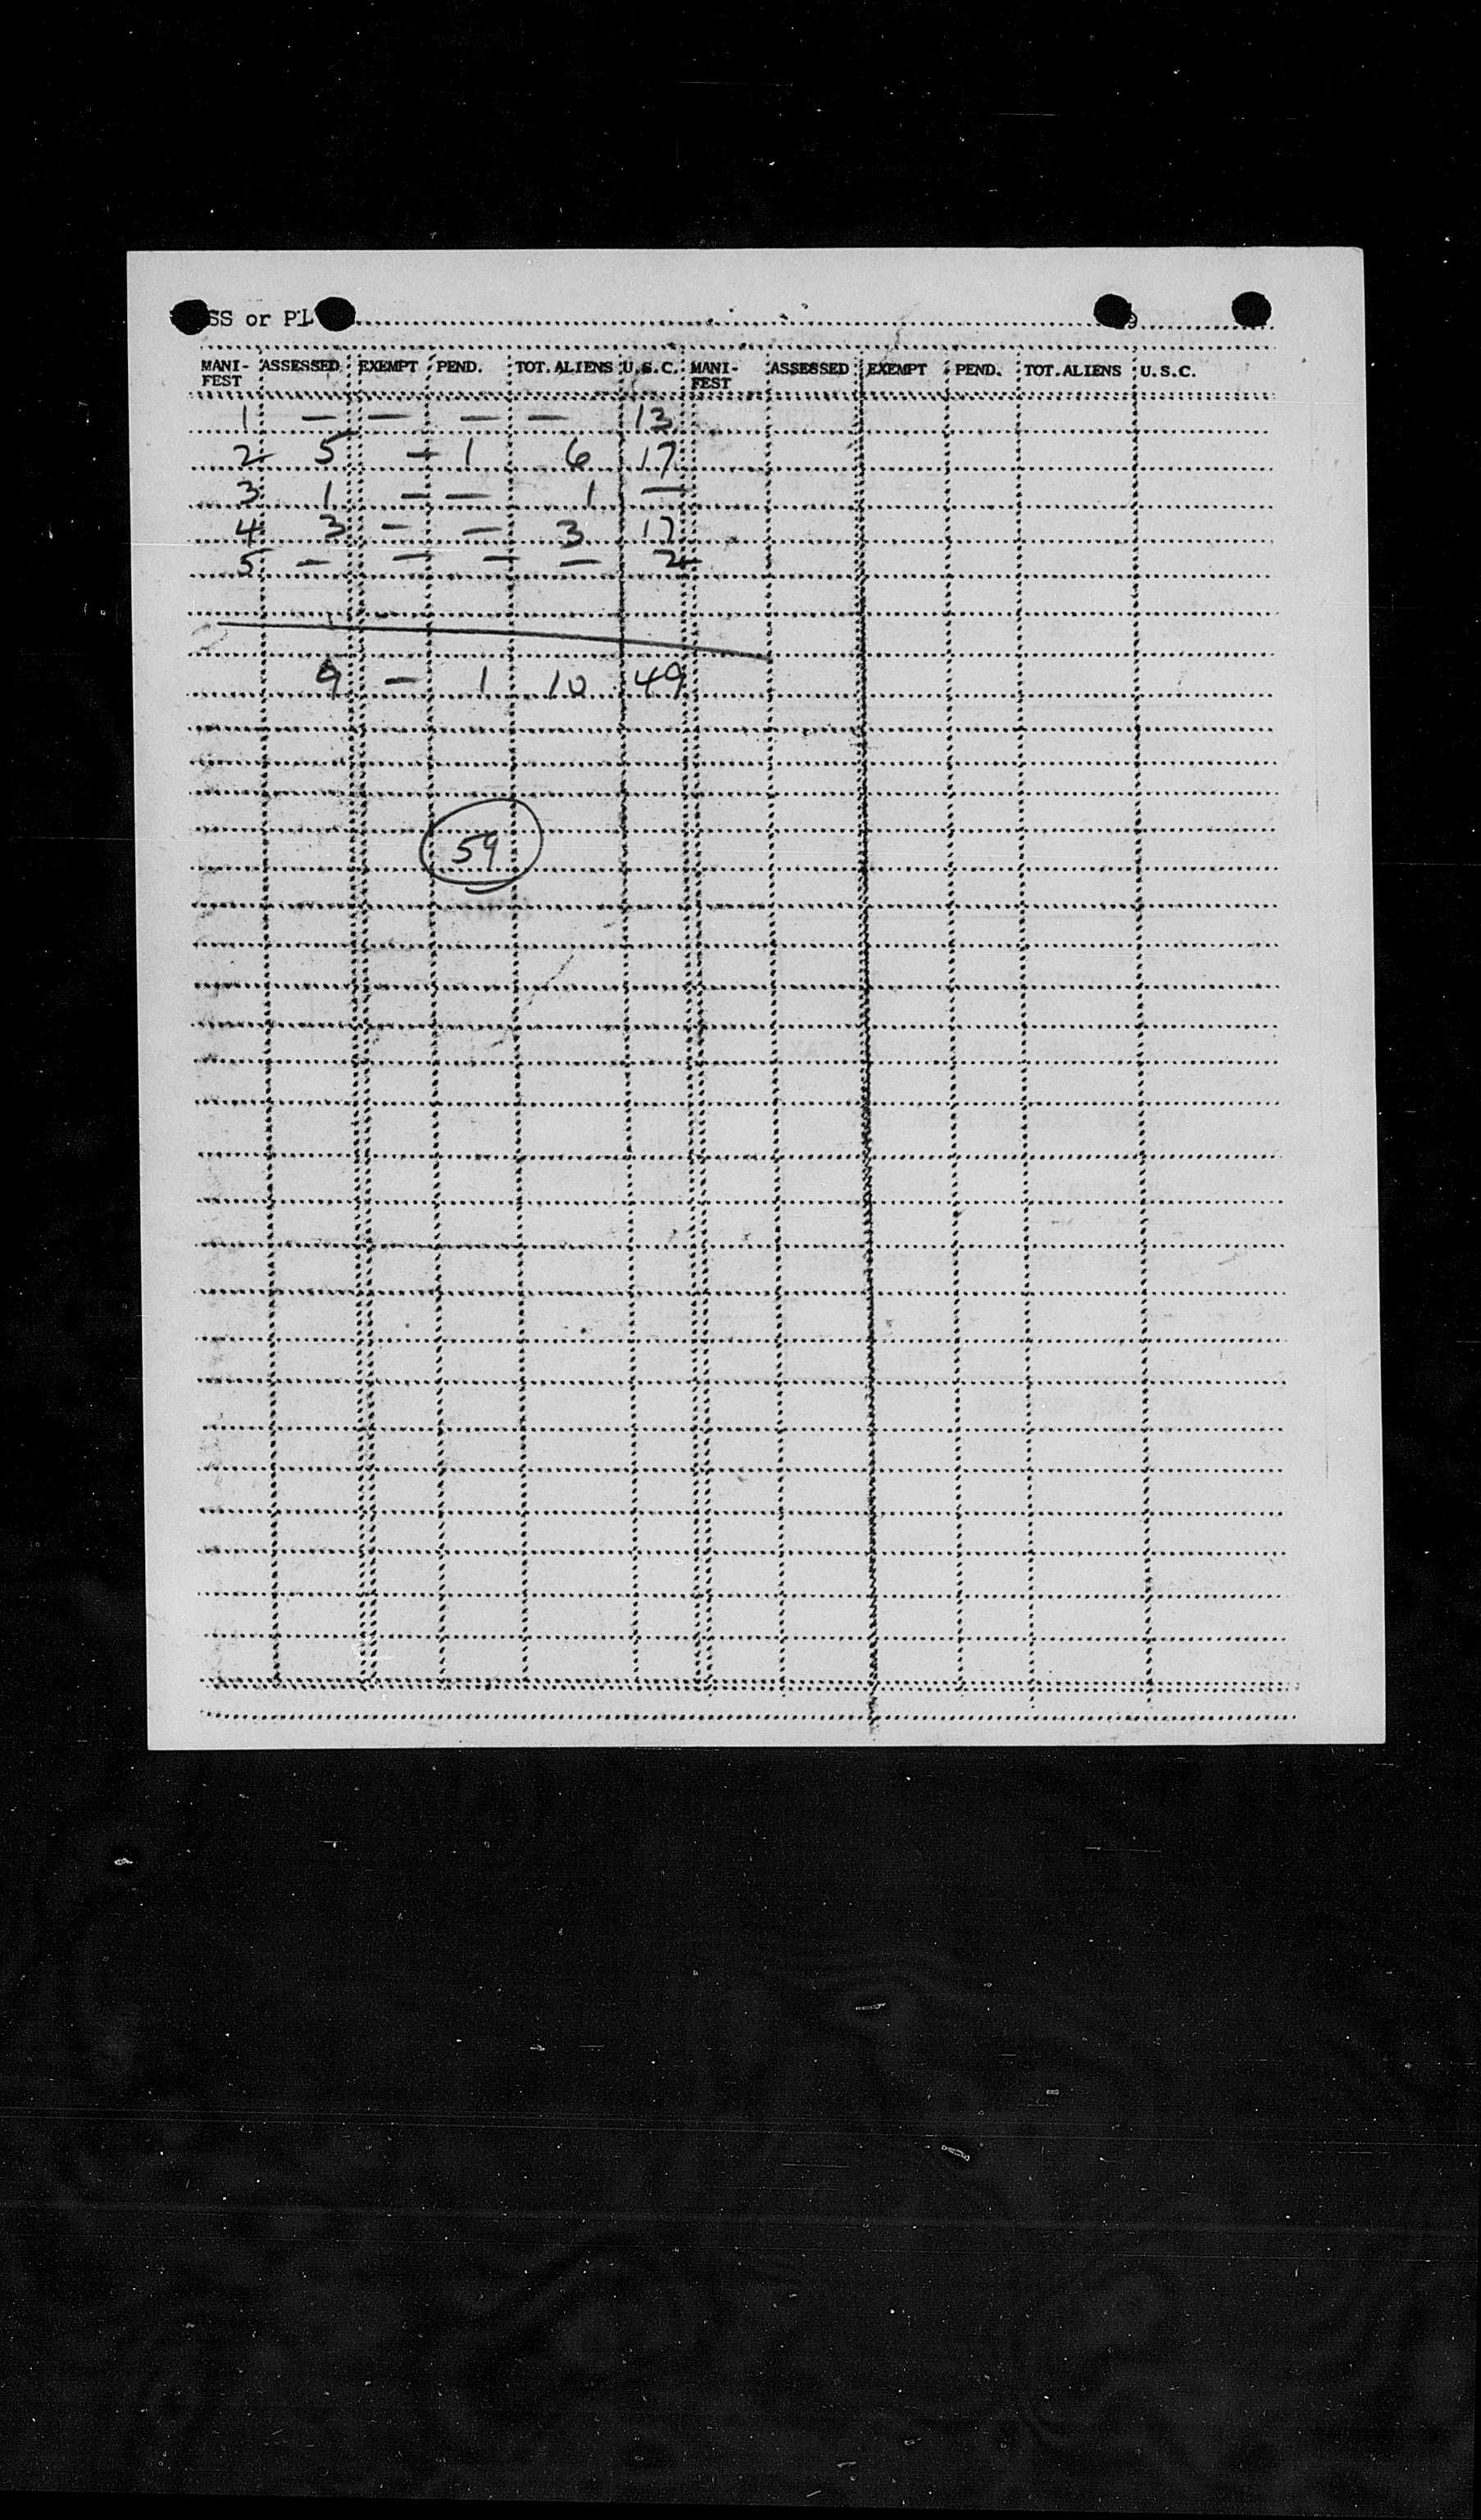 SS or PL
MANI-FEST ASSESSED EXEMPT PEND. TOT. ALIENS U.S.C. MANI-FEST ASSESSED EXEMPT PEND. TOT. ALIENS U.S.C.
1 — — — — 13
2 5 — 1 6 17
3 1 — — 1 —
4 3 — — 3 17
5 — — — — 2
9 — 1 10 49
59